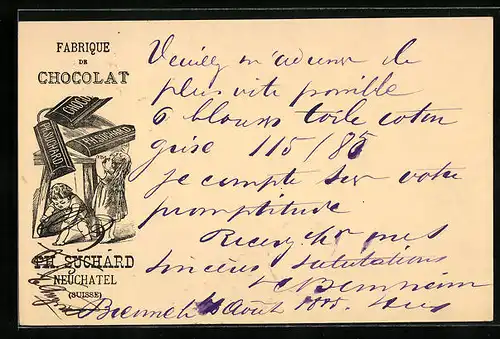 FABRIQUE
DE
CHOCOLAT
CHOCOLAT
PH.SUCHARD
PH.SUCHARD
PH. SUCHARD
NEUCHATEL
(SUISSE)
Veuillez m'adresser le
plus vite possible
6 blouses toile coton
grise 115/85
je compte sur votre
promptitude
Recevez mes
sincères salutations
Août